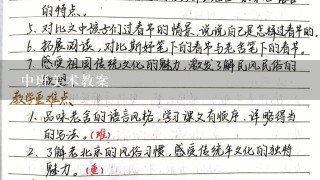 的特点。
5. 对比文中孩子们过春节的情景,说说自己是怎样过春节的。
6. 拓展阅读,对比斯妤笔下的春节与老舍笔下的春节。
7. 感受祖国传统文化的魅力,激发了解民风民俗的
中班美术教案
教学重难点
1. 品味老舍的语言风格,学习课文有顺序、详略得当
的写法。(难)
2. 了解老北京的风俗习惯,感受传统年文化的独特
魅力。(重)